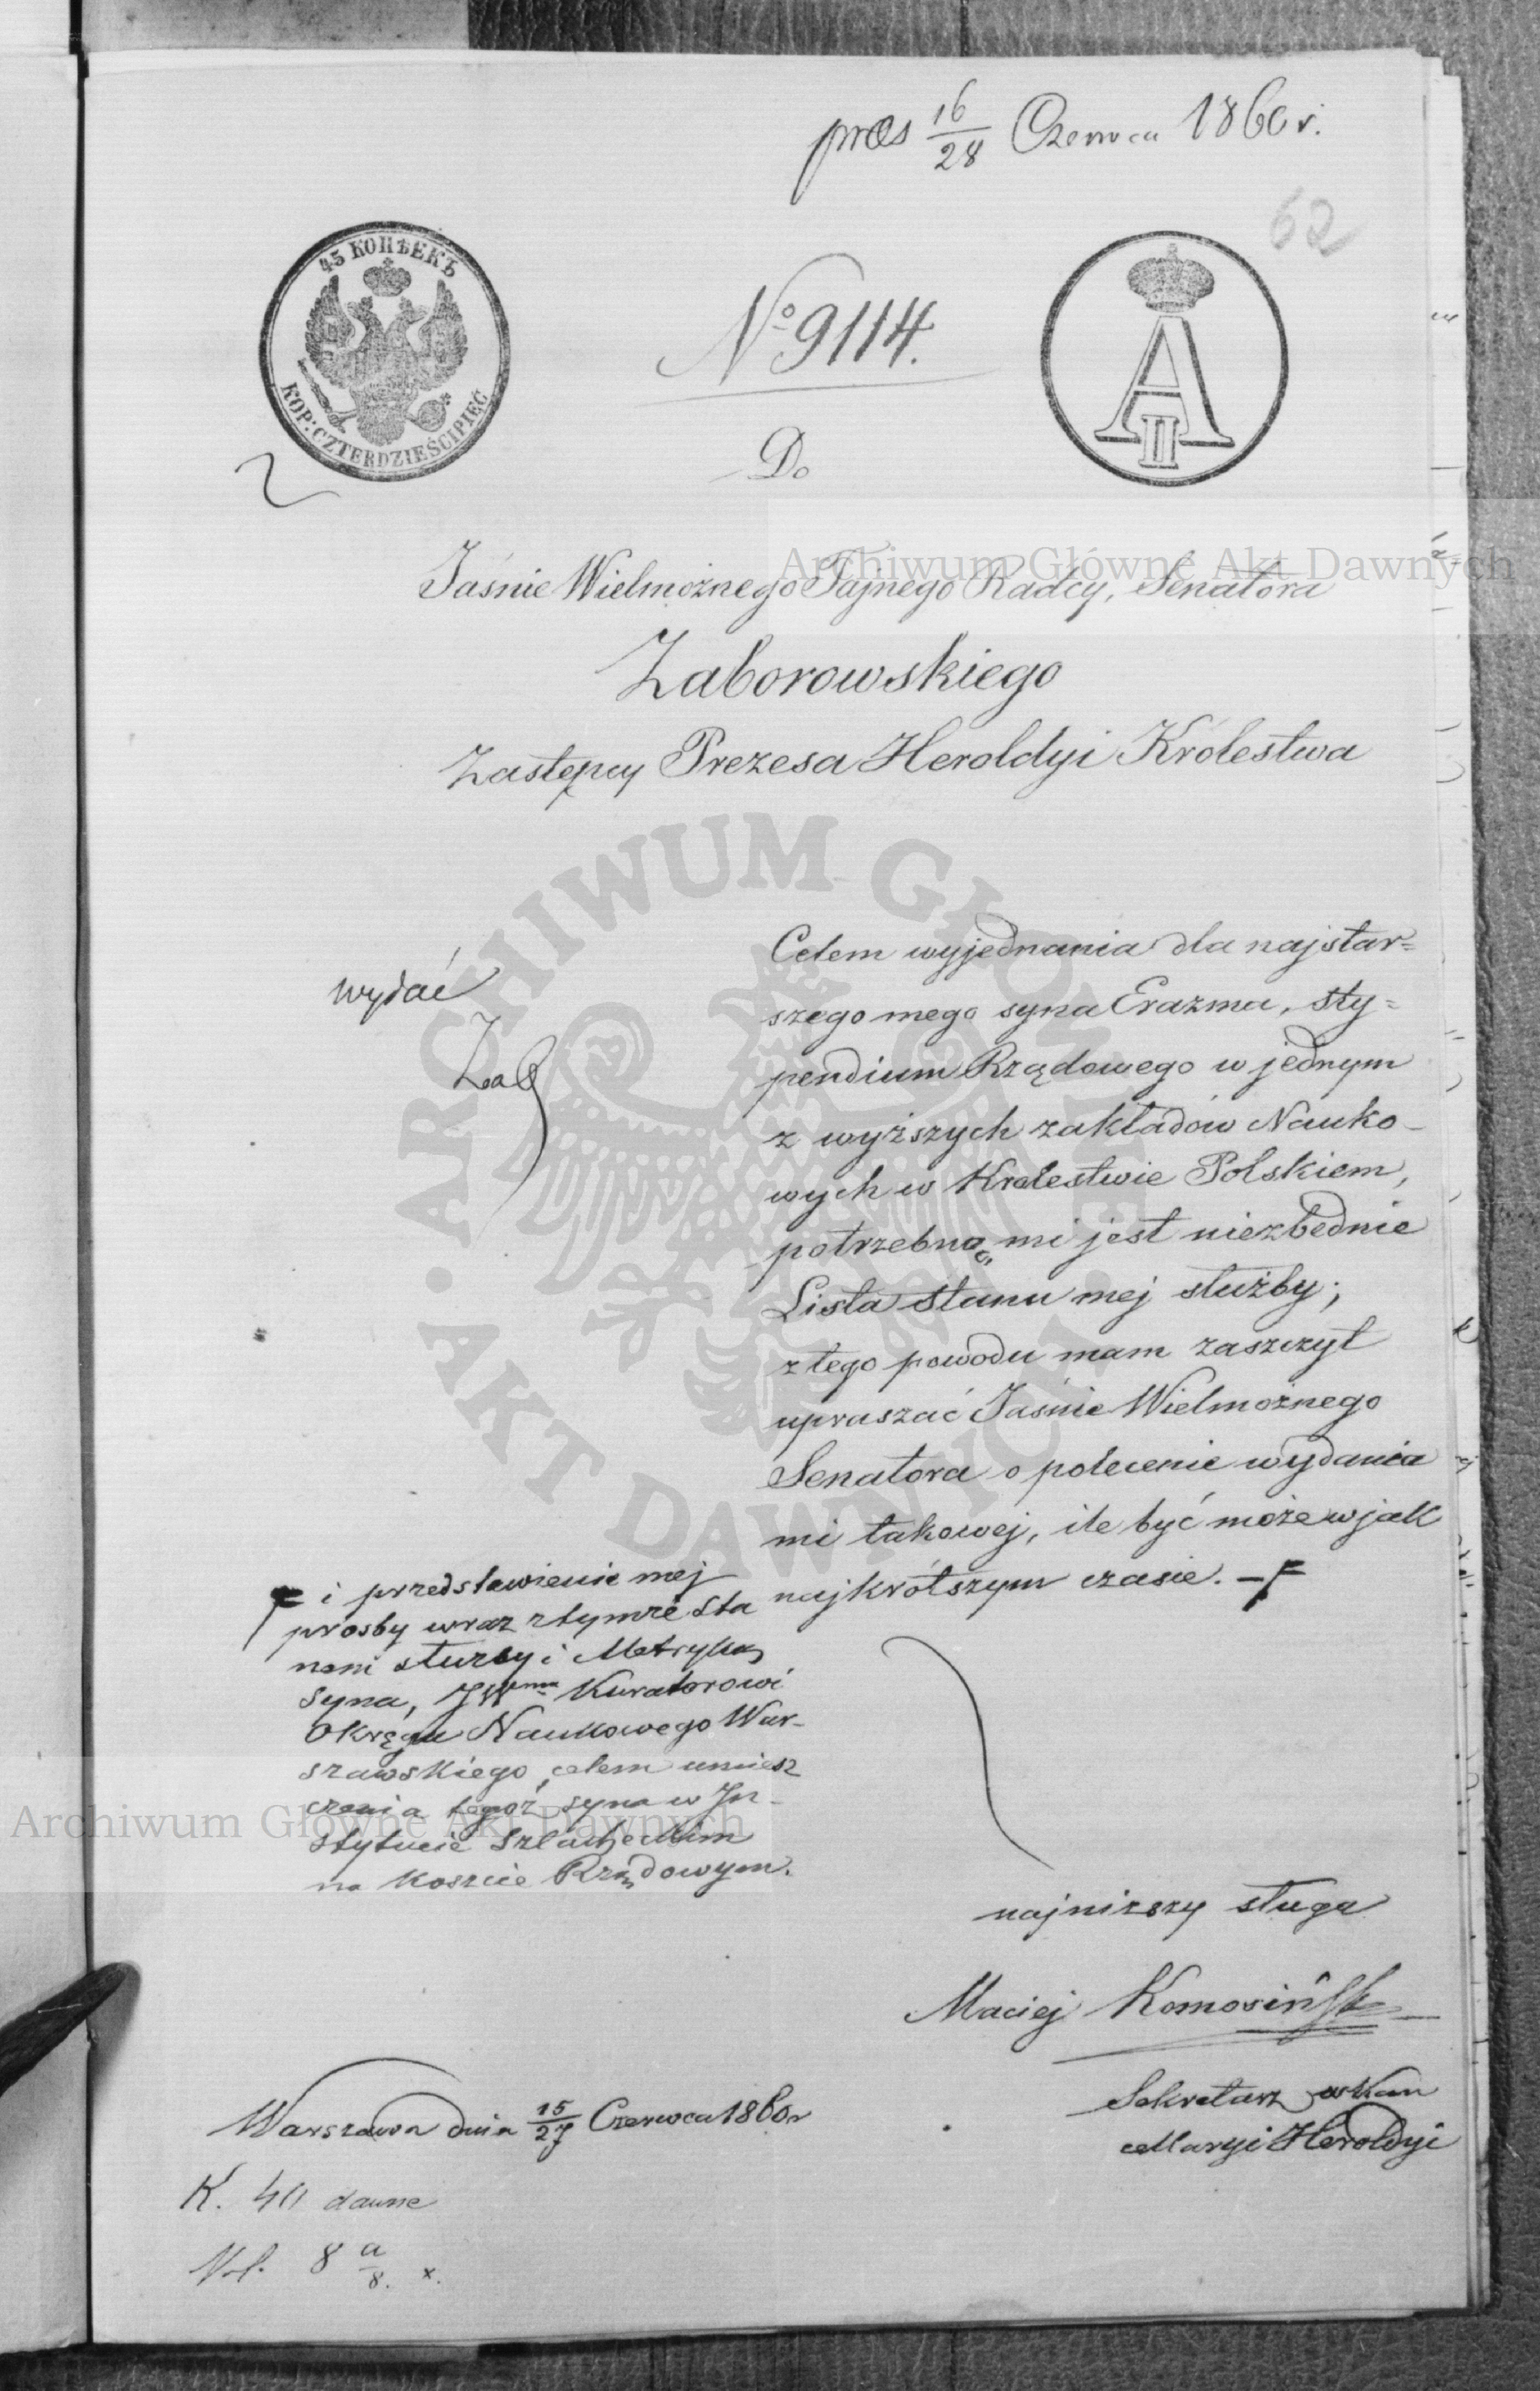 præs 16/28 Czerwca 1860 r.
62
45 КОПѢЕКЪ
КОР: CZTERDZIEŚCI PIĘĆ
№ 9114.
A II
Do
Jaśnie Wielmożnego Tajnego Radcy, Senatora
Zaborowskiego
Zastępcy Prezesa Heroldyi Królestwa
wydać
Zab
Celem wyjednania dla najstar=
szego mego syna Erazma, sty=
pendium Rządowego w jednym
z wyższych zakładów Nauko-
wych w Królestwie Polskiem,
potrzebną mi jest niezbędnie
Lista stanu mej służby;
z tego powodu mam zaszczyt
upraszać Jaśnie Wielmożnego
Senatora o polecenie wydania
mi takowej, ile być może w jak
najkrótszym czasie. –F
F i przedstawienie mej
prośby wraz z tymże Sta
nem służby i Metryką
Syna, JWmu Kuratorowi
Okręgu Naukowego War-
szawskiego, celem umiesz
czenia tegoż syna w In-
stytucie Szlacheckim
na koszcie Rządowym.
najniższy sługa
Maciej Komosiński
Sekretarz w Kan
cellaryi Heroldyi
Warszawa dnia 15/27 Czerwca 1860 r
K. 40 dawne
Vol. 8 a/8. x.
Archiwum Główne Akt Dawnych
ARCHIWUM GŁÓWNE · AKT DAWNYCH ·
Archiwum Główne Akt Dawnych